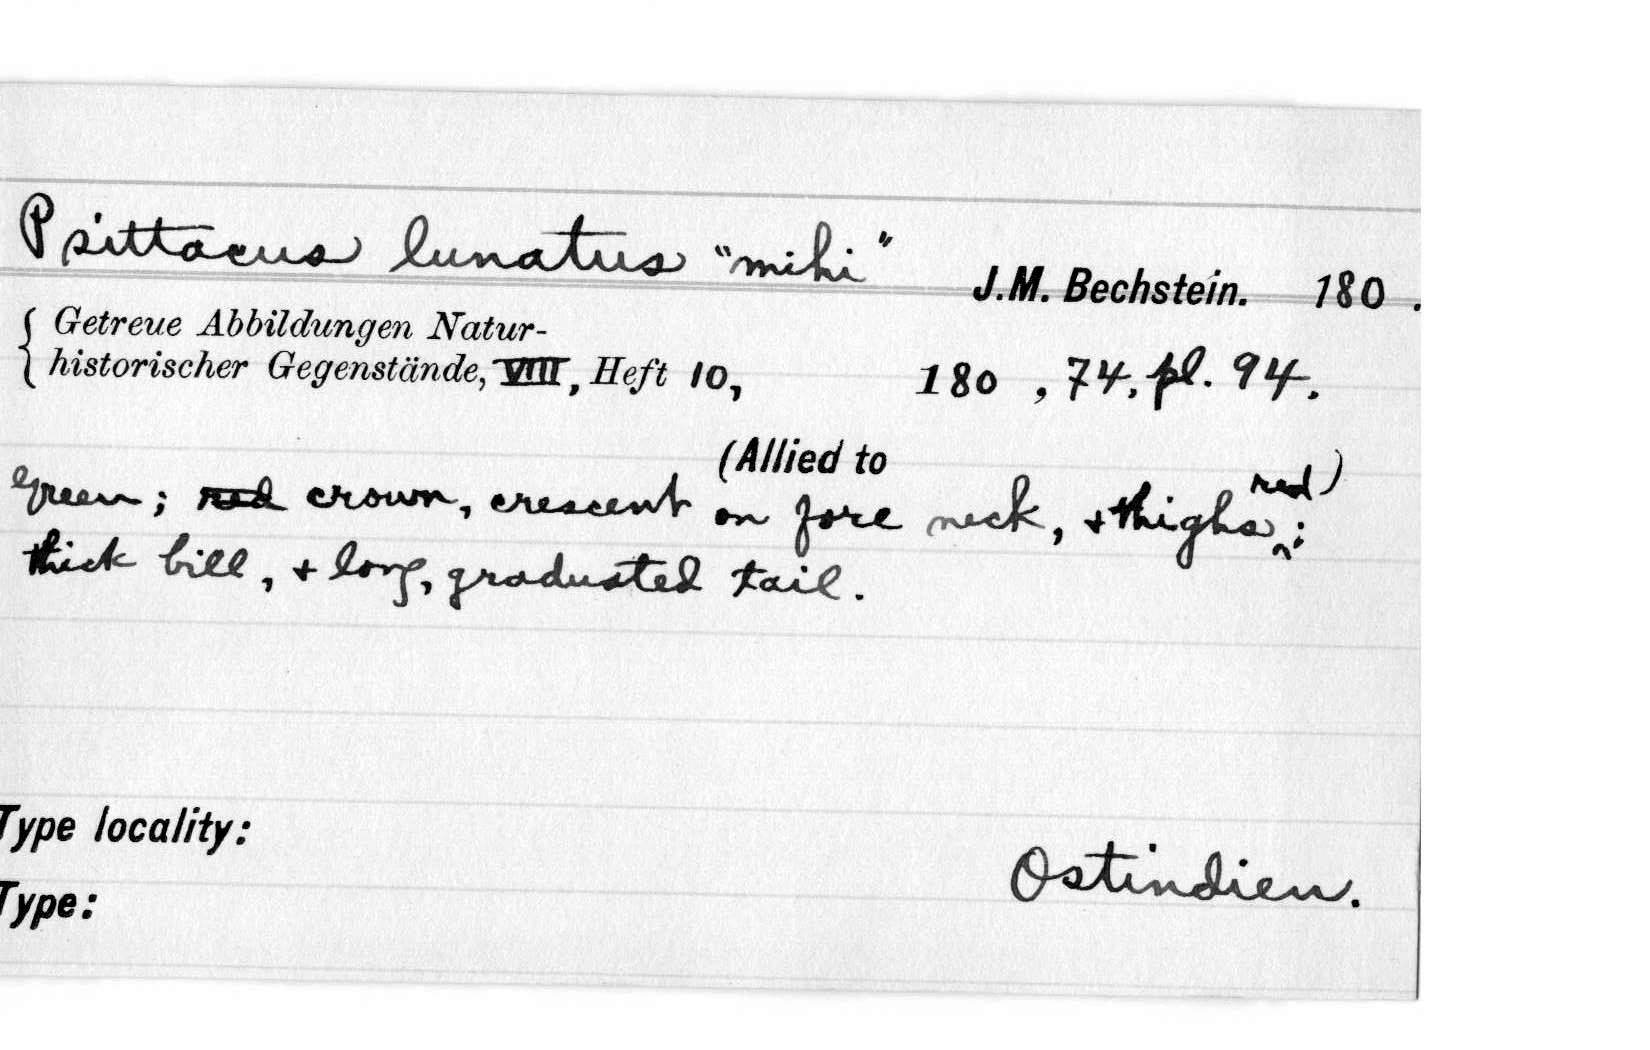 Psittacus lunatus "mihi" J.M. Bechstein. 180 .
{ Getreue Abbildungen Natur-
historischer Gegenstände, VIII, Heft 10, 180 , 74, pl. 94.
(Allied to
Green; red crown, crescent on fore neck, + thighs red);
thick bill, + long, graduated tail.
Type locality:
Ostindien.
Type: